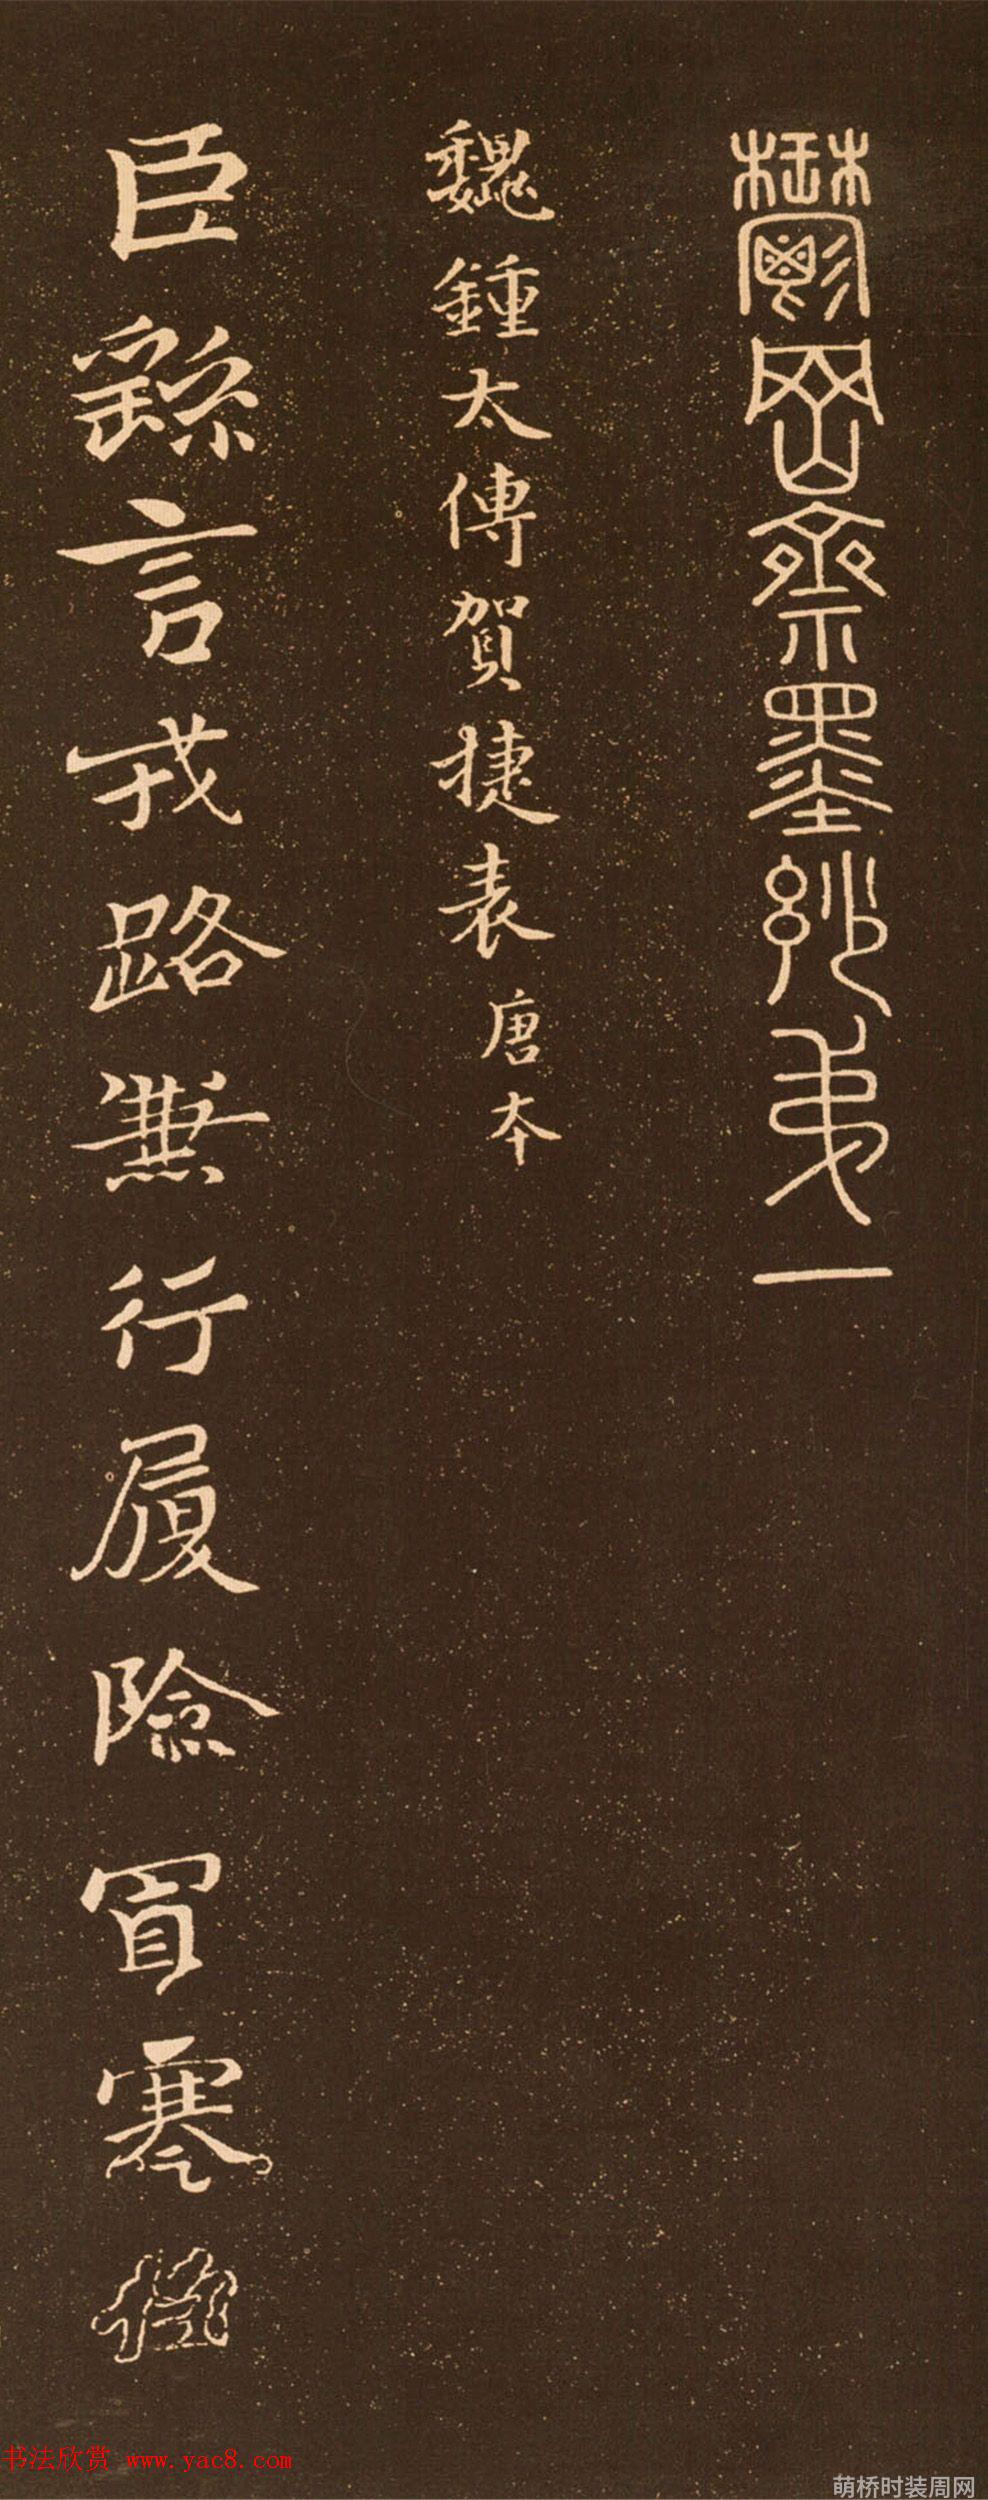 鬱岡齋墨妙弟一
魏鍾太傅賀捷表 唐本
臣繇言戎路兼行履險冒寒
书法欣赏 www.yac8.com
萌桥时装周网